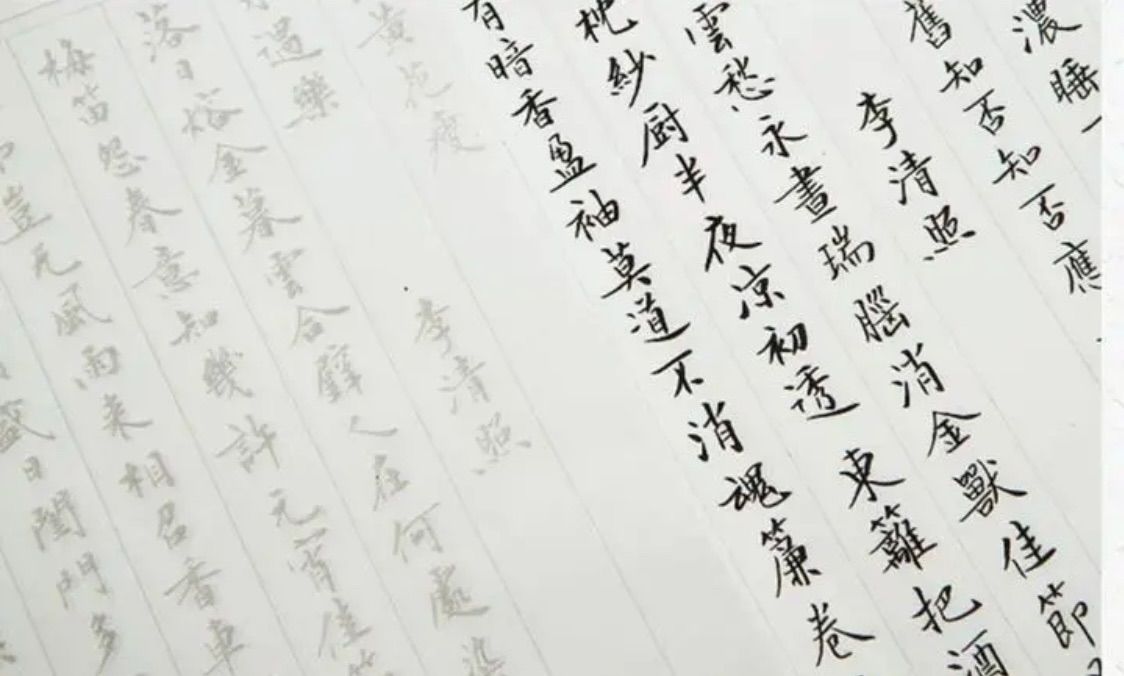 濃睡
舊知否知否應
李清照
雲愁永晝瑞腦消金獸佳節
枕紗厨半夜凉初透東籬把酒
有暗香盈袖莫道不消魂簾卷
黄花瘦
李清照
遇樂
落日熔金暮雲合璧人在何處染
梅笛怨春意知幾許元宵佳節
豈无風雨来相召香車
盛日閨門多